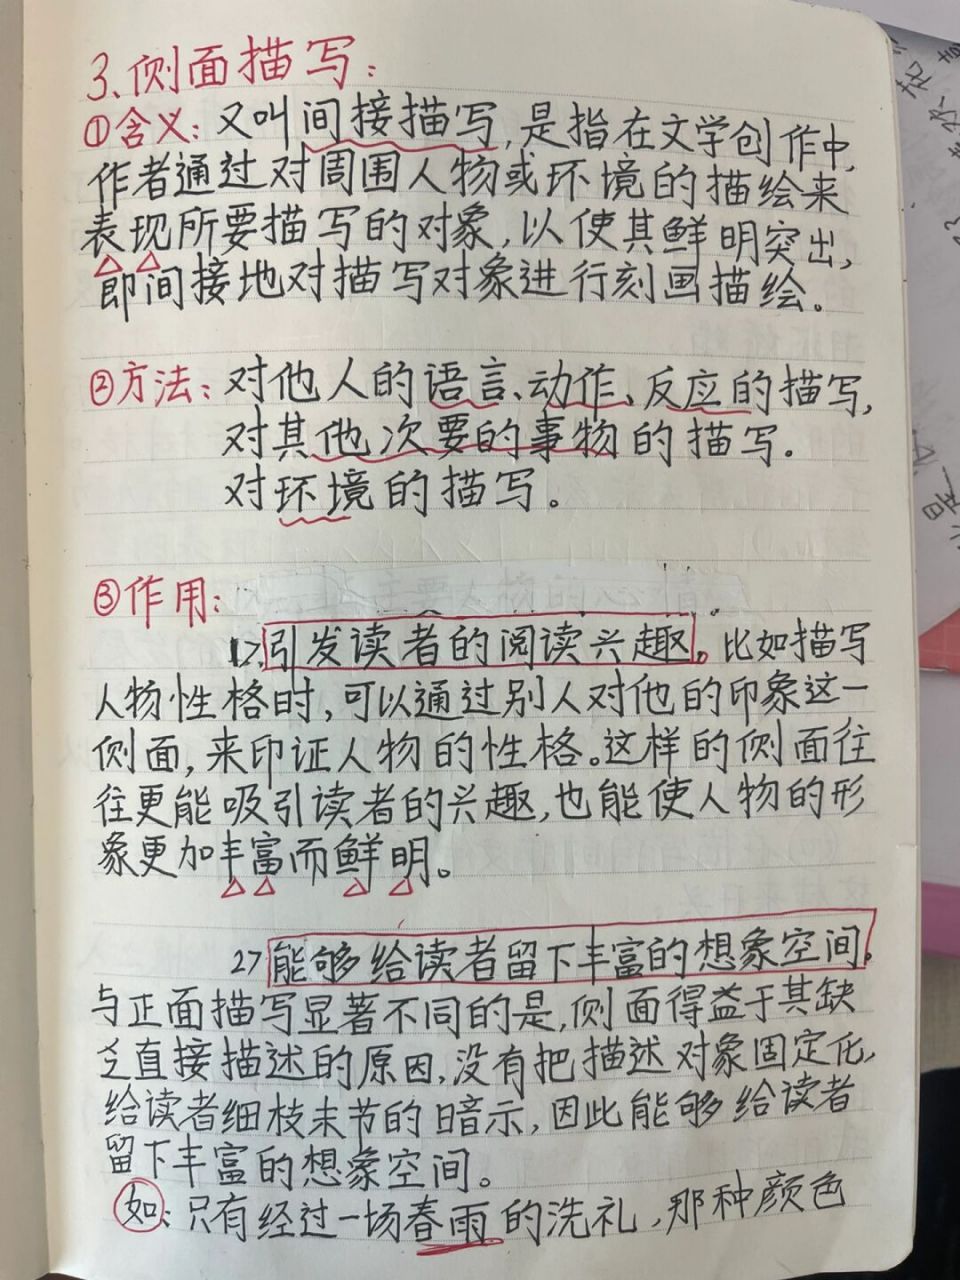 3、侧面描写：
①含义：又叫间接描写，是指在文学创作中，
作者通过对周围人物或环境的描绘来
表现所要描写的对象，以使其鲜明突出，
即间接地对描写对象进行刻画描绘。
②方法：对他人的语言、动作、反应的描写，
对其他次要的事物的描写.
对环境的描写。
③作用：
1>.引发读者的阅读兴趣。比如描写
人物性格时，可以通过别人对他的印象这一
侧面，来印证人物的性格。这样的侧面往
往更能吸引读者的兴趣，也能使人物的形
象更加丰富而鲜明。
2>能够给读者留下丰富的想象空间。
与正面描写显著不同的是，侧面得益于其缺
乏直接描述的原因，没有把描述对象固定化，
给读者细枝末节的暗示，因此能够给读者
留下丰富的想象空间。
如：只有经过一场春雨的洗礼，那种颜色